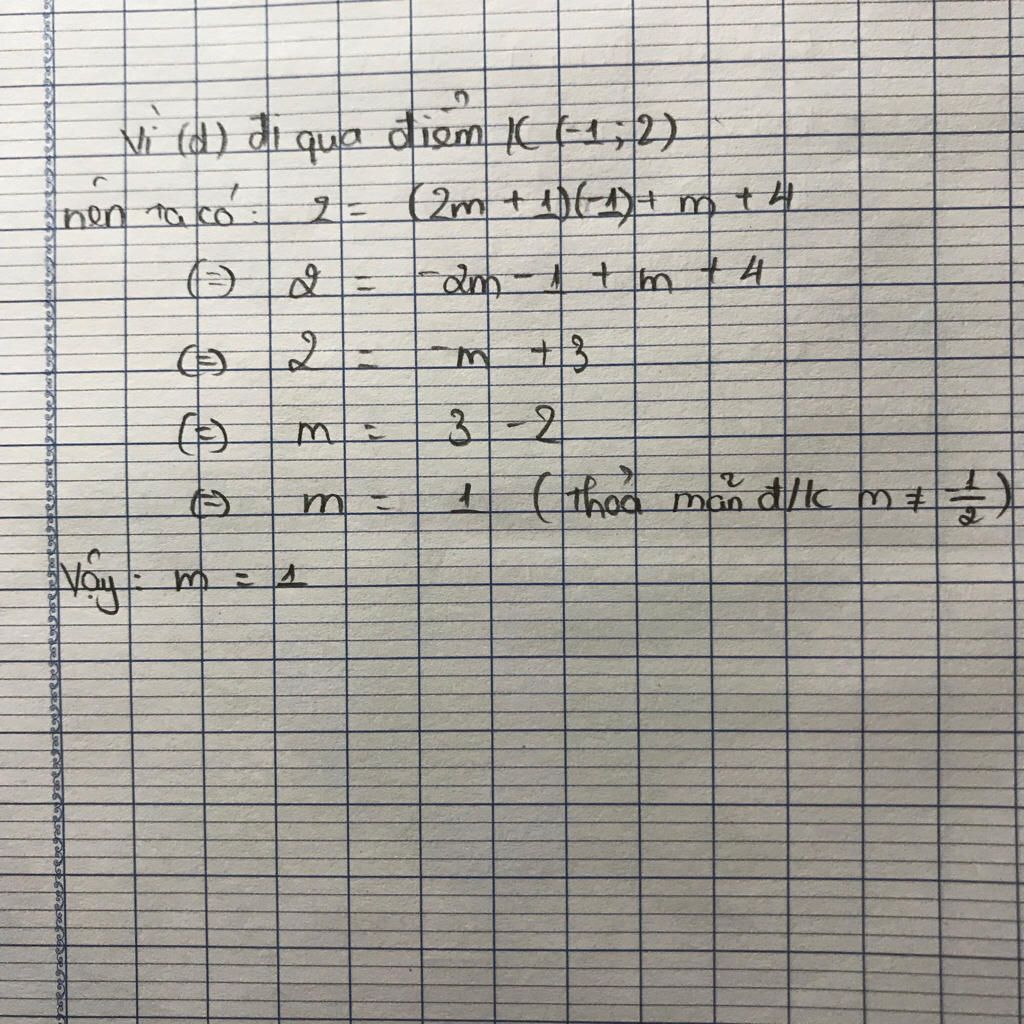 Vì (d) đi qua điểm K (-1; 2)
nên ta có: 2 = (2m + 1)(-1) + m + 4
(=) 2 = -2m - 1 + m + 4
(=) 2 = -m + 3
(=) m = 3 - 2
(=) m = 1 (thoả mãn đ/k m ≠ 1/2)
Vậy: m = 1